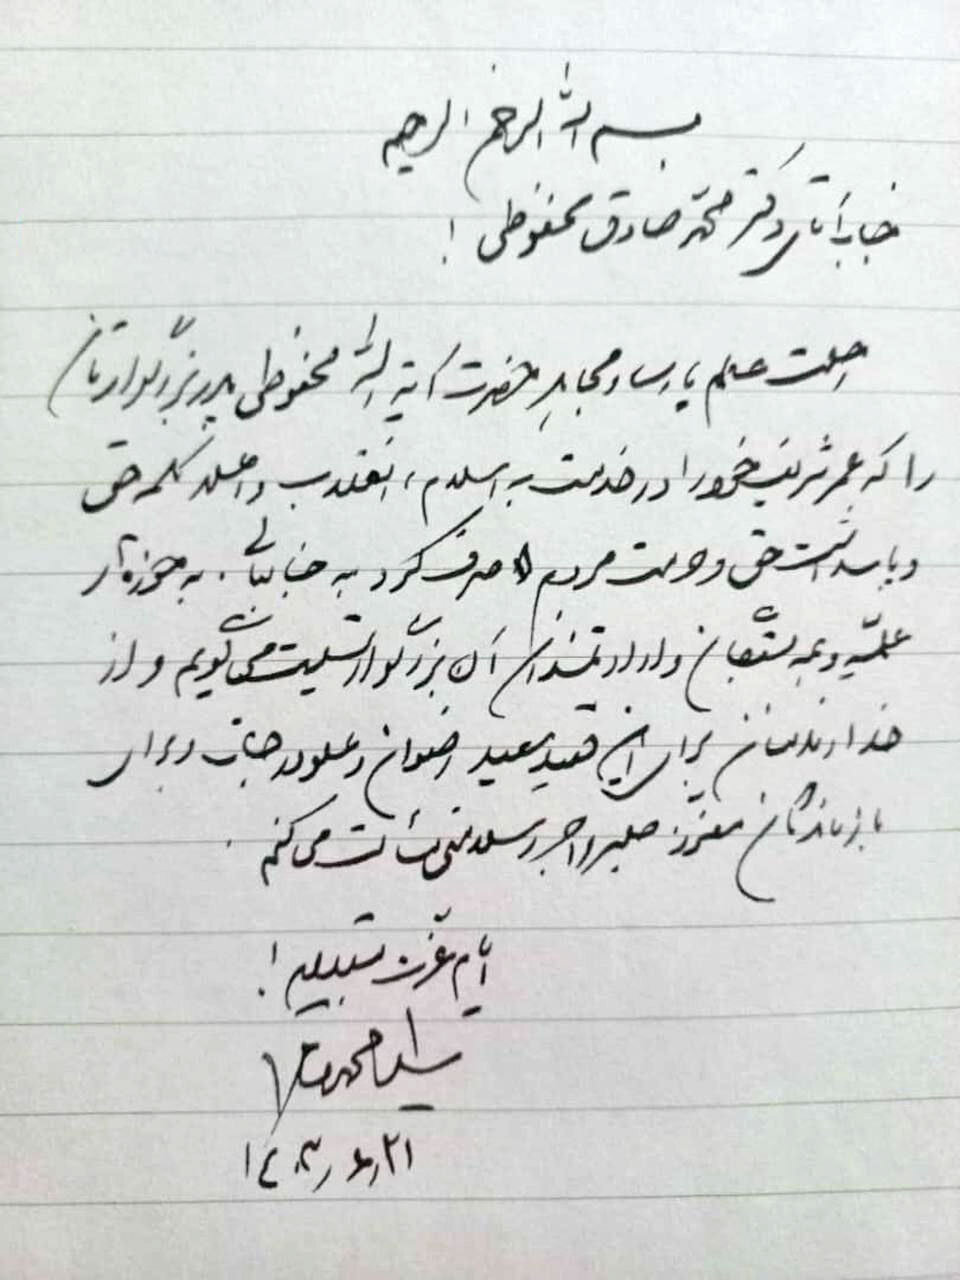 بسم الله الرحمن الرحیم
جناب آقای دکتر محمد صادق محفوظی !
رحلت عالم پارسا و مجاهد حضرت آیة الله محفوظی پدر بزرگوارتان
را که عمر شریف خود را در خدمت به اسلام، انقلاب و اعلاء کلمه حق
و پاسداشت حق و حرمت مردم صرف کرد به جنابعالی، به حوزه‌های
علمیّه و همه بستگان و ارادتمندان آن بزرگوار تسلیت می‌گویم و از
خداوند منان برای این فقید سعید رضوان و علو درجات و برای
بازماندگان معزز صبر و اجر و سلامتی مسألت می‌کنم.
ایّام عزت مستدام !
سید محمد خاتمی
۱۴۰۳٫۶٫۲۱